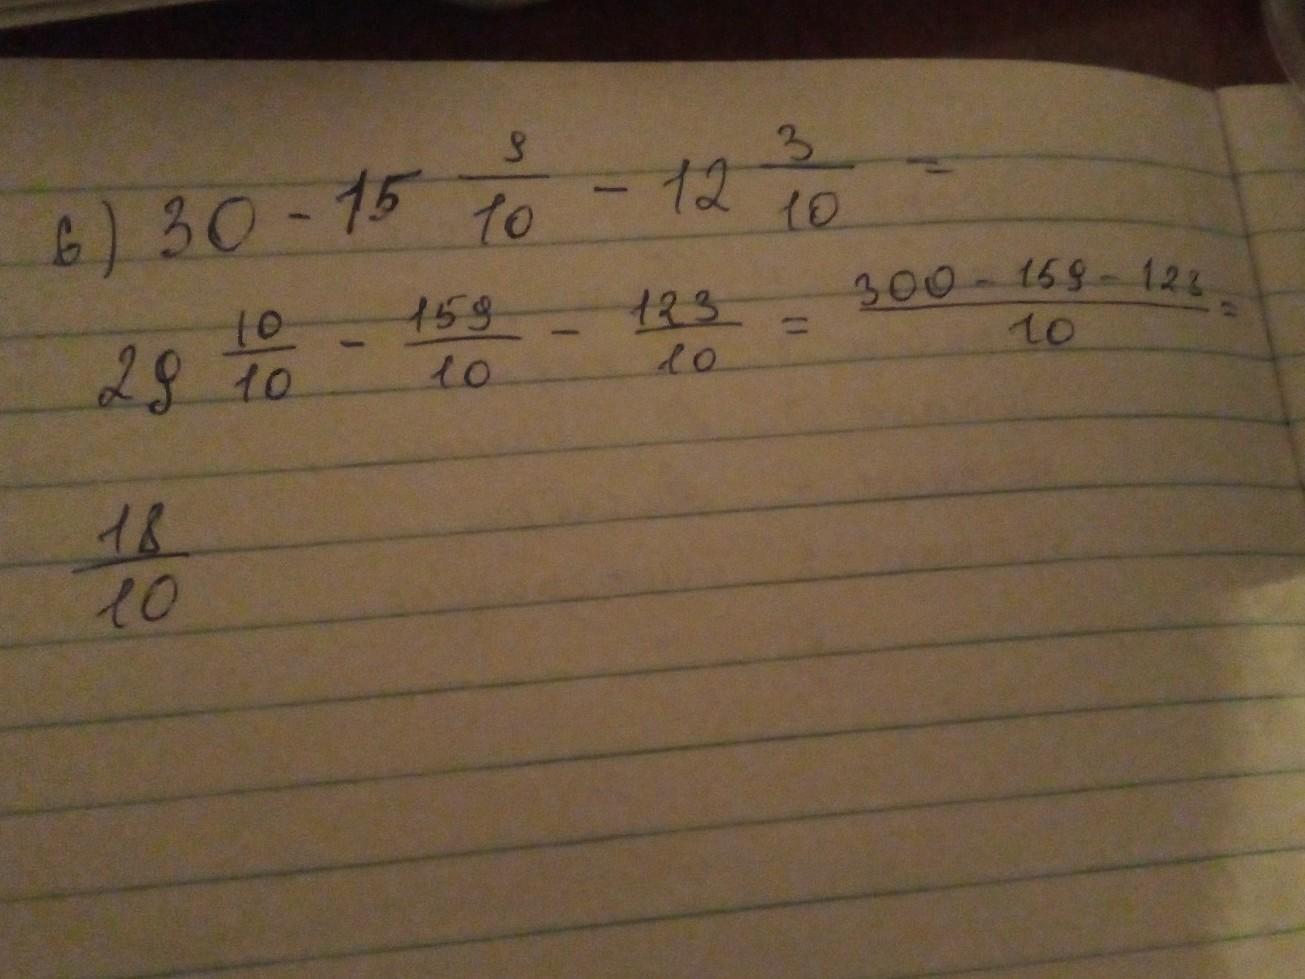 б) 30 - 15 9/10 - 12 3/10 =
29 10/10 - 159/10 - 123/10 = 300 - 159 - 123/10 =
18/10